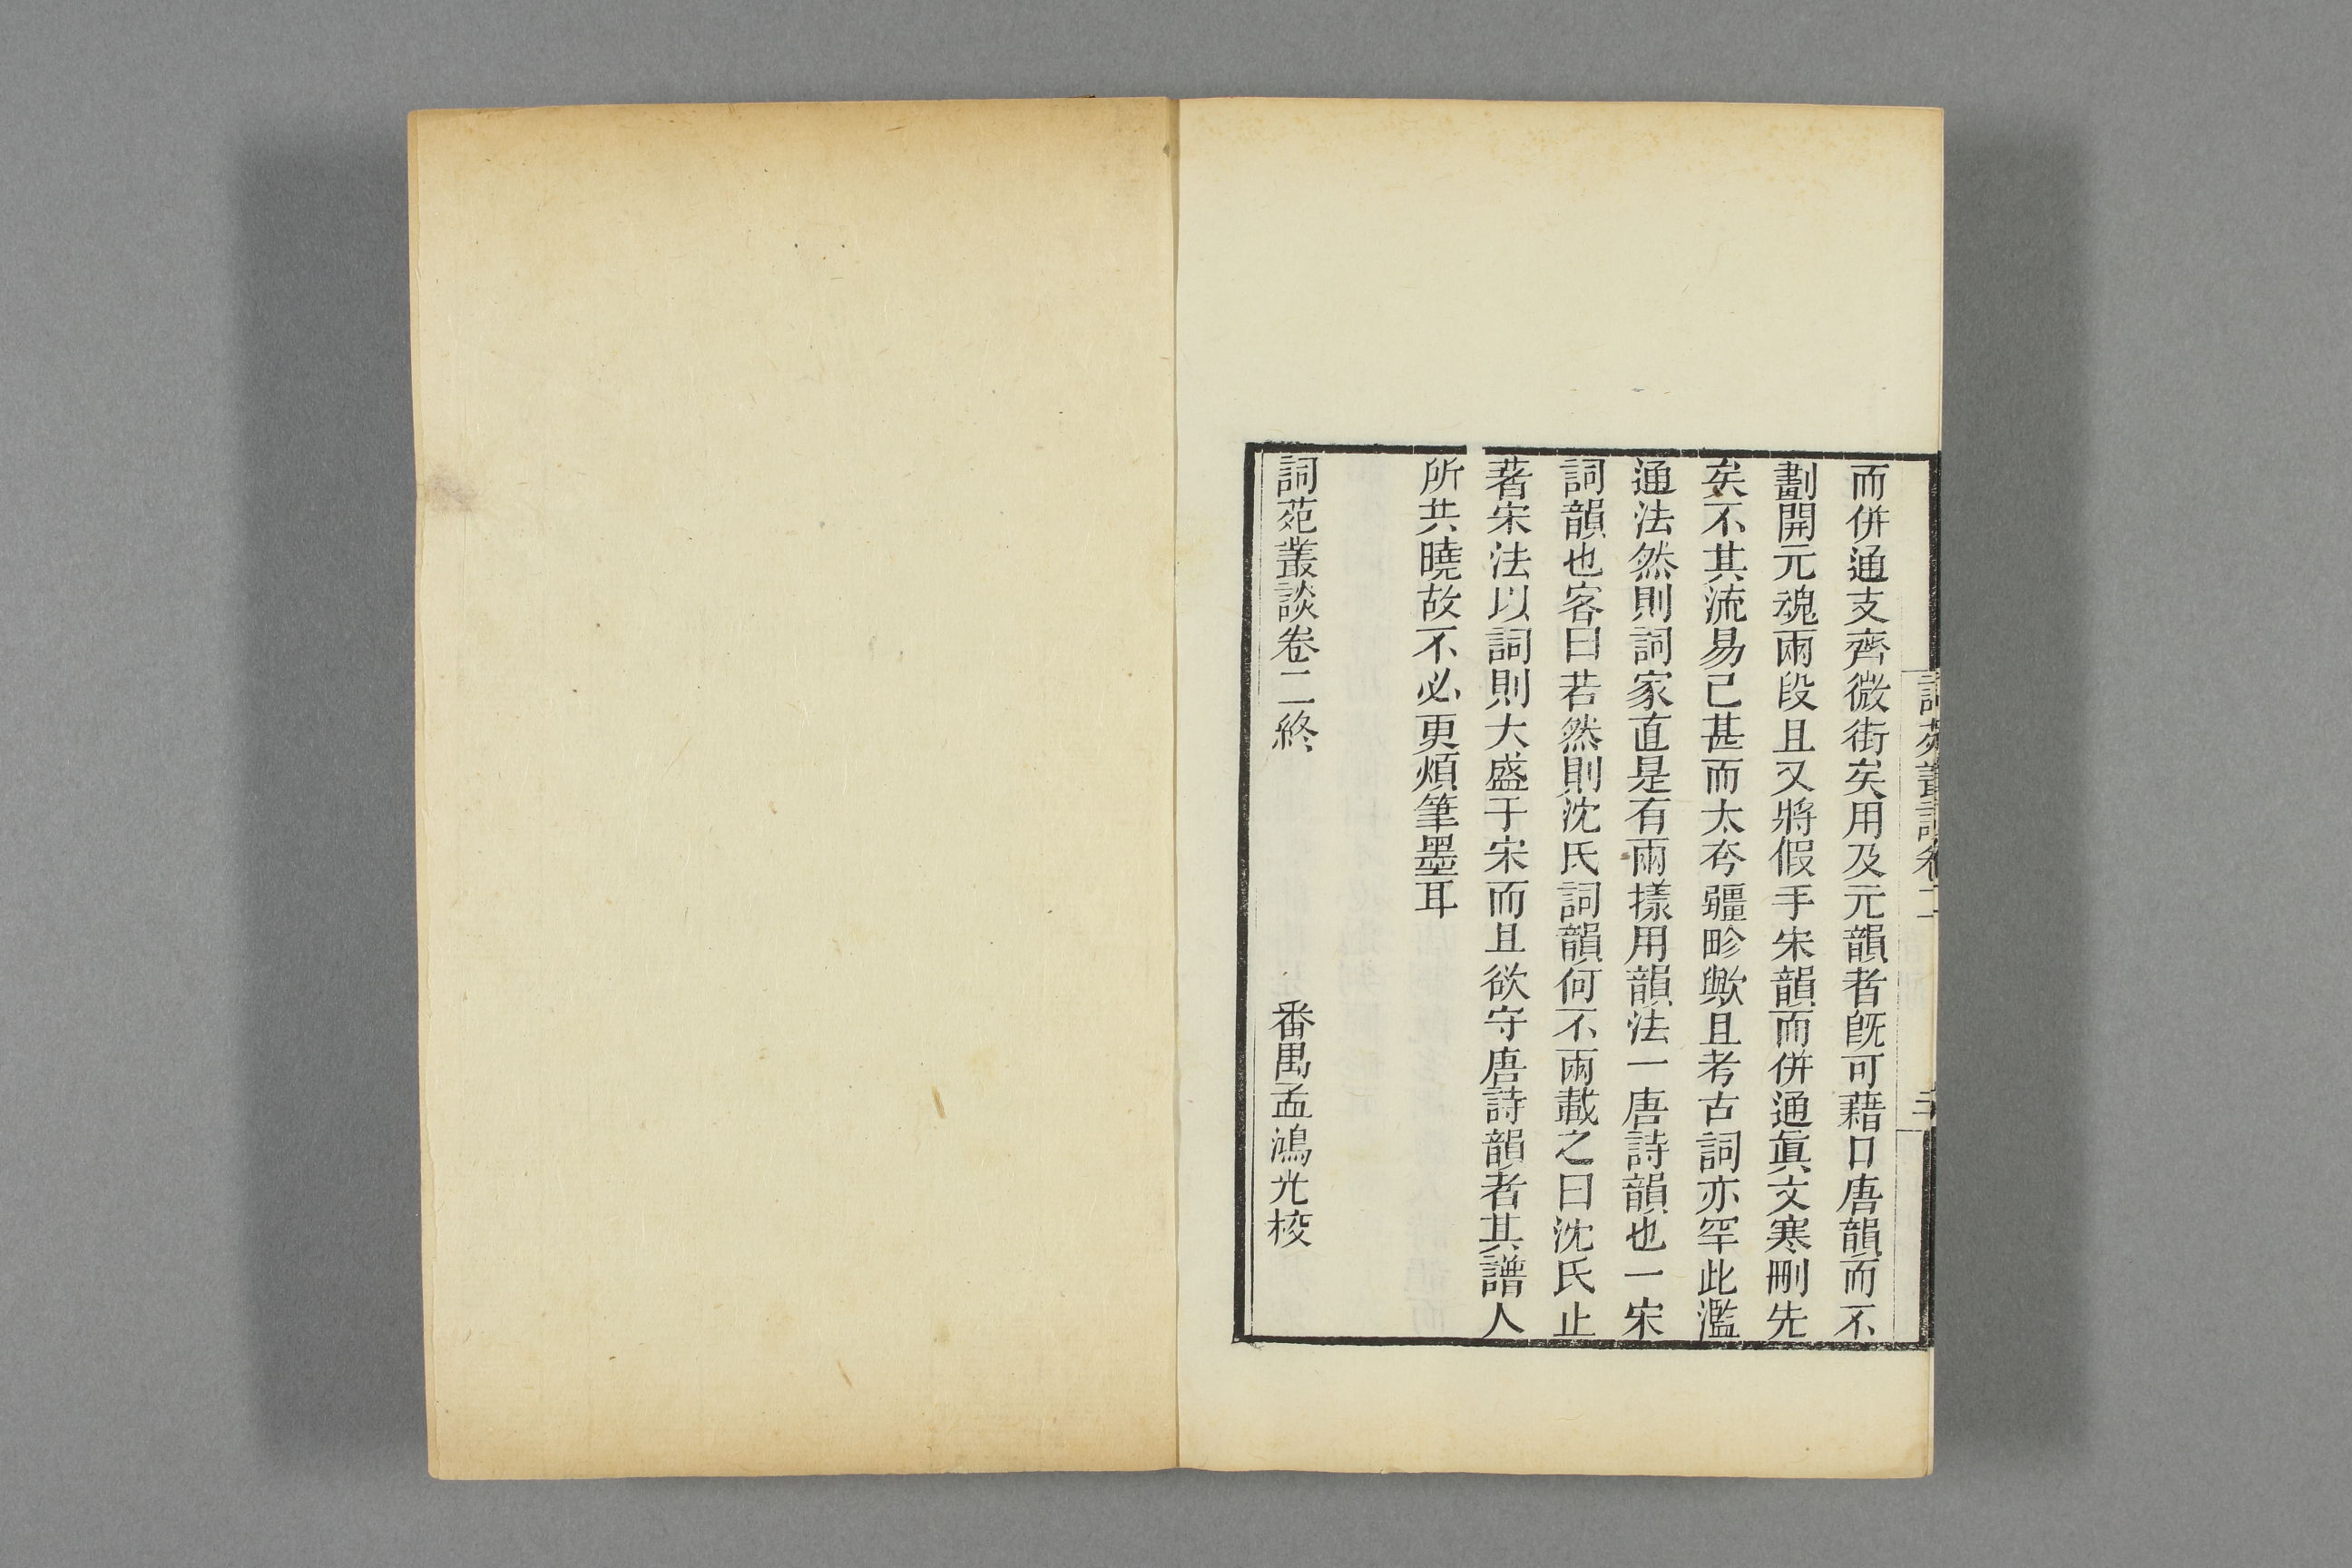 而併通支齊微街矣用及元韻者旣可藉口唐韻而不
劃開元魂兩段且又將假手宋韻而併通眞文寒刪先
矣不其流易已甚而太夸疆畛歟且考古詞亦罕此濫
通法然則詞家直是有兩㨾用韻法一唐詩韻也一宋
詞韻也客曰若然則沈氏詞韻何不兩載之曰沈氏止
著宋法以詞則大盛于宋而且欲守唐詩韻者其譜人
所共曉故不必更煩筆墨耳
詞苑叢談卷二終
番禺孟鴻光校
詞苑叢談卷二